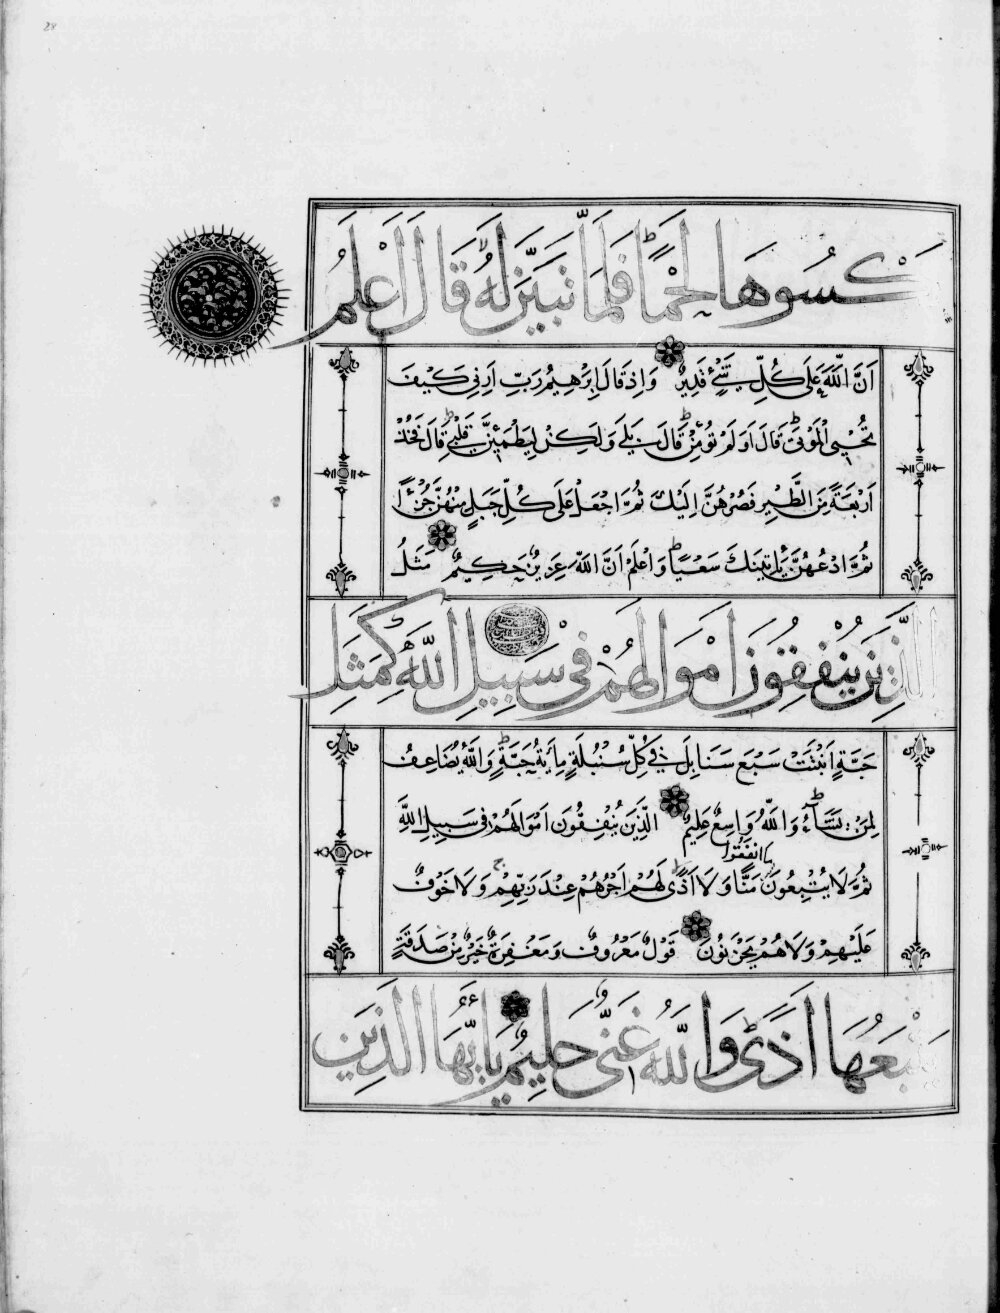 28
نَكْسُوهَا لَحْمًا فَلَمَّا تَبَيَّنَ لَهُ قَالَ اَعْلَمُ
اَنَّ اللّٰهَ عَلٰى كُلِّ شَیْءٍ قَدِيرٌ وَاِذْ قَالَ اِبْرٰهِيمُ رَبِّ اَرِنِى كَيْفَ
تُحْيِى الْمَوْتٰى قَالَ اَوَلَمْ تُؤْمِنْ قَالَ بَلٰى وَلٰكِنْ لِيَطْمَئِنَّ قَلْبِى قَالَ فَخُذْ
اَرْبَعَةً مِنَ الطَّيْرِ فَصُرْهُنَّ اِلَيْكَ ثُمَّ اجْعَلْ عَلٰى كُلِّ جَبَلٍ مِنْهُنَّ جُزْءًا
ثُمَّ ادْعُهُنَّ يَأْتِينَكَ سَعْيًا وَاعْلَمْ اَنَّ اللّٰهَ عَزِيزٌ حَكِيمٌ مَثَلُ
الَّذِينَ يُنْفِقُونَ اَمْوَالَهُمْ فِى سَبِيلِ اللّٰهِ كَمَثَلِ
حَبَّةٍ اَنْبَتَتْ سَبْعَ سَنَابِلَ فِى كُلِّ سُنْبُلَةٍ مِايَةُ حَبَّةٍ وَاللّٰهُ يُضَاعِفُ
لِمَنْ يَشَآءُ وَاللّٰهُ وَاسِعٌ عَلِيمٌ الَّذِينَ يُنْفِقُونَ اَمْوَالَهُمْ فِى سَبِيلِ اللّٰهِ
مَا اَنْفَقُوا
ثُمَّ لَا يُتْبِعُونَ مَنًّا وَلَا اَذًى لَهُمْ اَجْرُهُمْ عِنْدَ رَبِّهِمْ وَلَا خَوْفٌ
عَلَيْهِمْ وَلَا هُمْ يَحْزَنُونَ قَوْلٌ مَعْرُوفٌ وَمَغْفِرَةٌ خَيْرٌ مِنْ صَدَقَةٍ
يَتْبَعُهَا اَذًى وَاللّٰهُ غَنِىٌّ حَلِيمٌ يَا اَيُّهَا الَّذِينَ